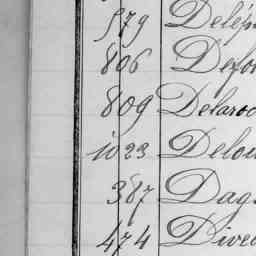 579 Delép
806 Defo
809 Delaro
1023 Delou
387 Dag
474 Dive